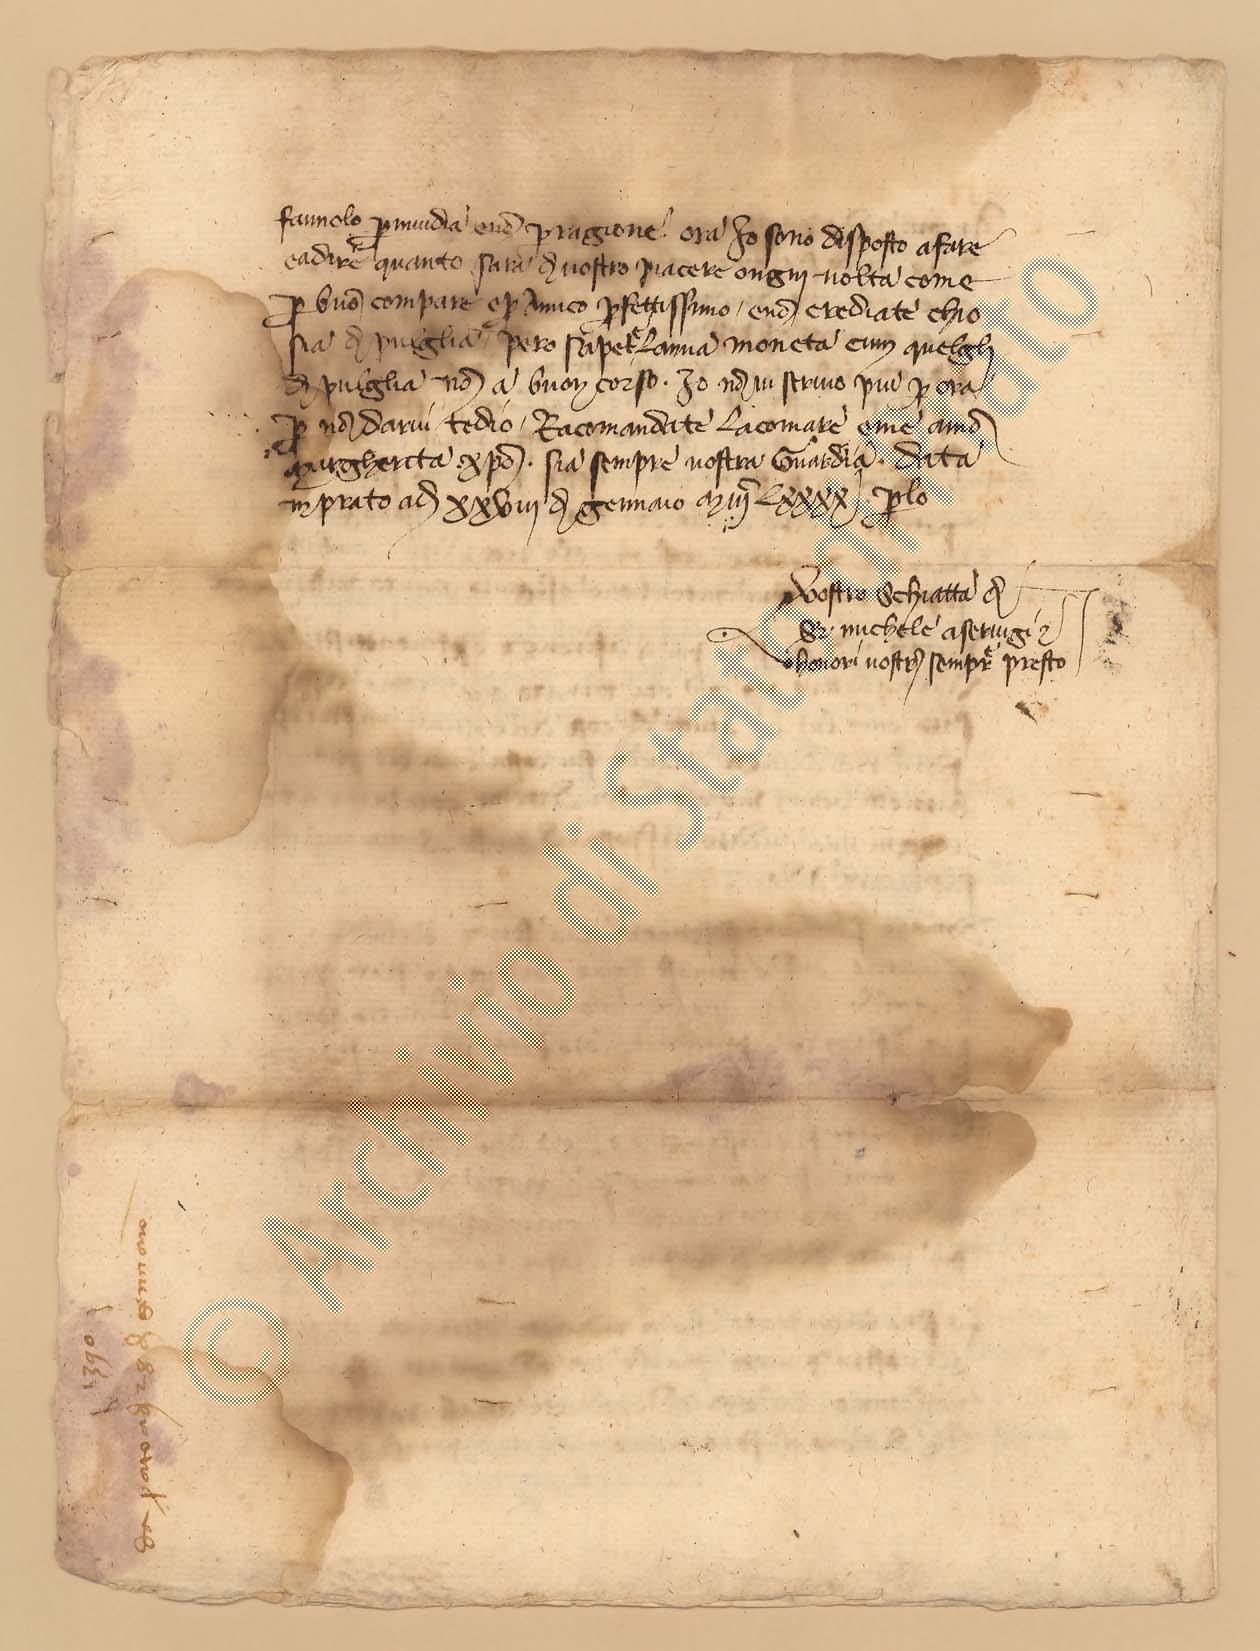 fannolo p(er) invidia e no(n) p(er) ragione. ora Io sono disposto a fare
e a dire quanto sara di vostro piacere ongni volta come
p(er) buo(n) compare e p(er) Amico p(er)fettissimo, e no(n) crediate chio
sia di puiglia, pero sapete La mia moneta cum quelgli
di pulglia no(n) a buon corso. Io no(n) vi scrivo piu p(er) ora
p(er) no(n) darvi tedio, Racomandate La comare e me a mo(n)
Margherita. xpo. sia sempre vostra Guardia. Data
in prato a di XXVIII di gennaio LXXXX. p(er) lo
Vostro Schiatta di
Ser michele a servigi
honori vostri sempre presto
© Archivio di Stato di Prato
Da prato di 28 di
1390